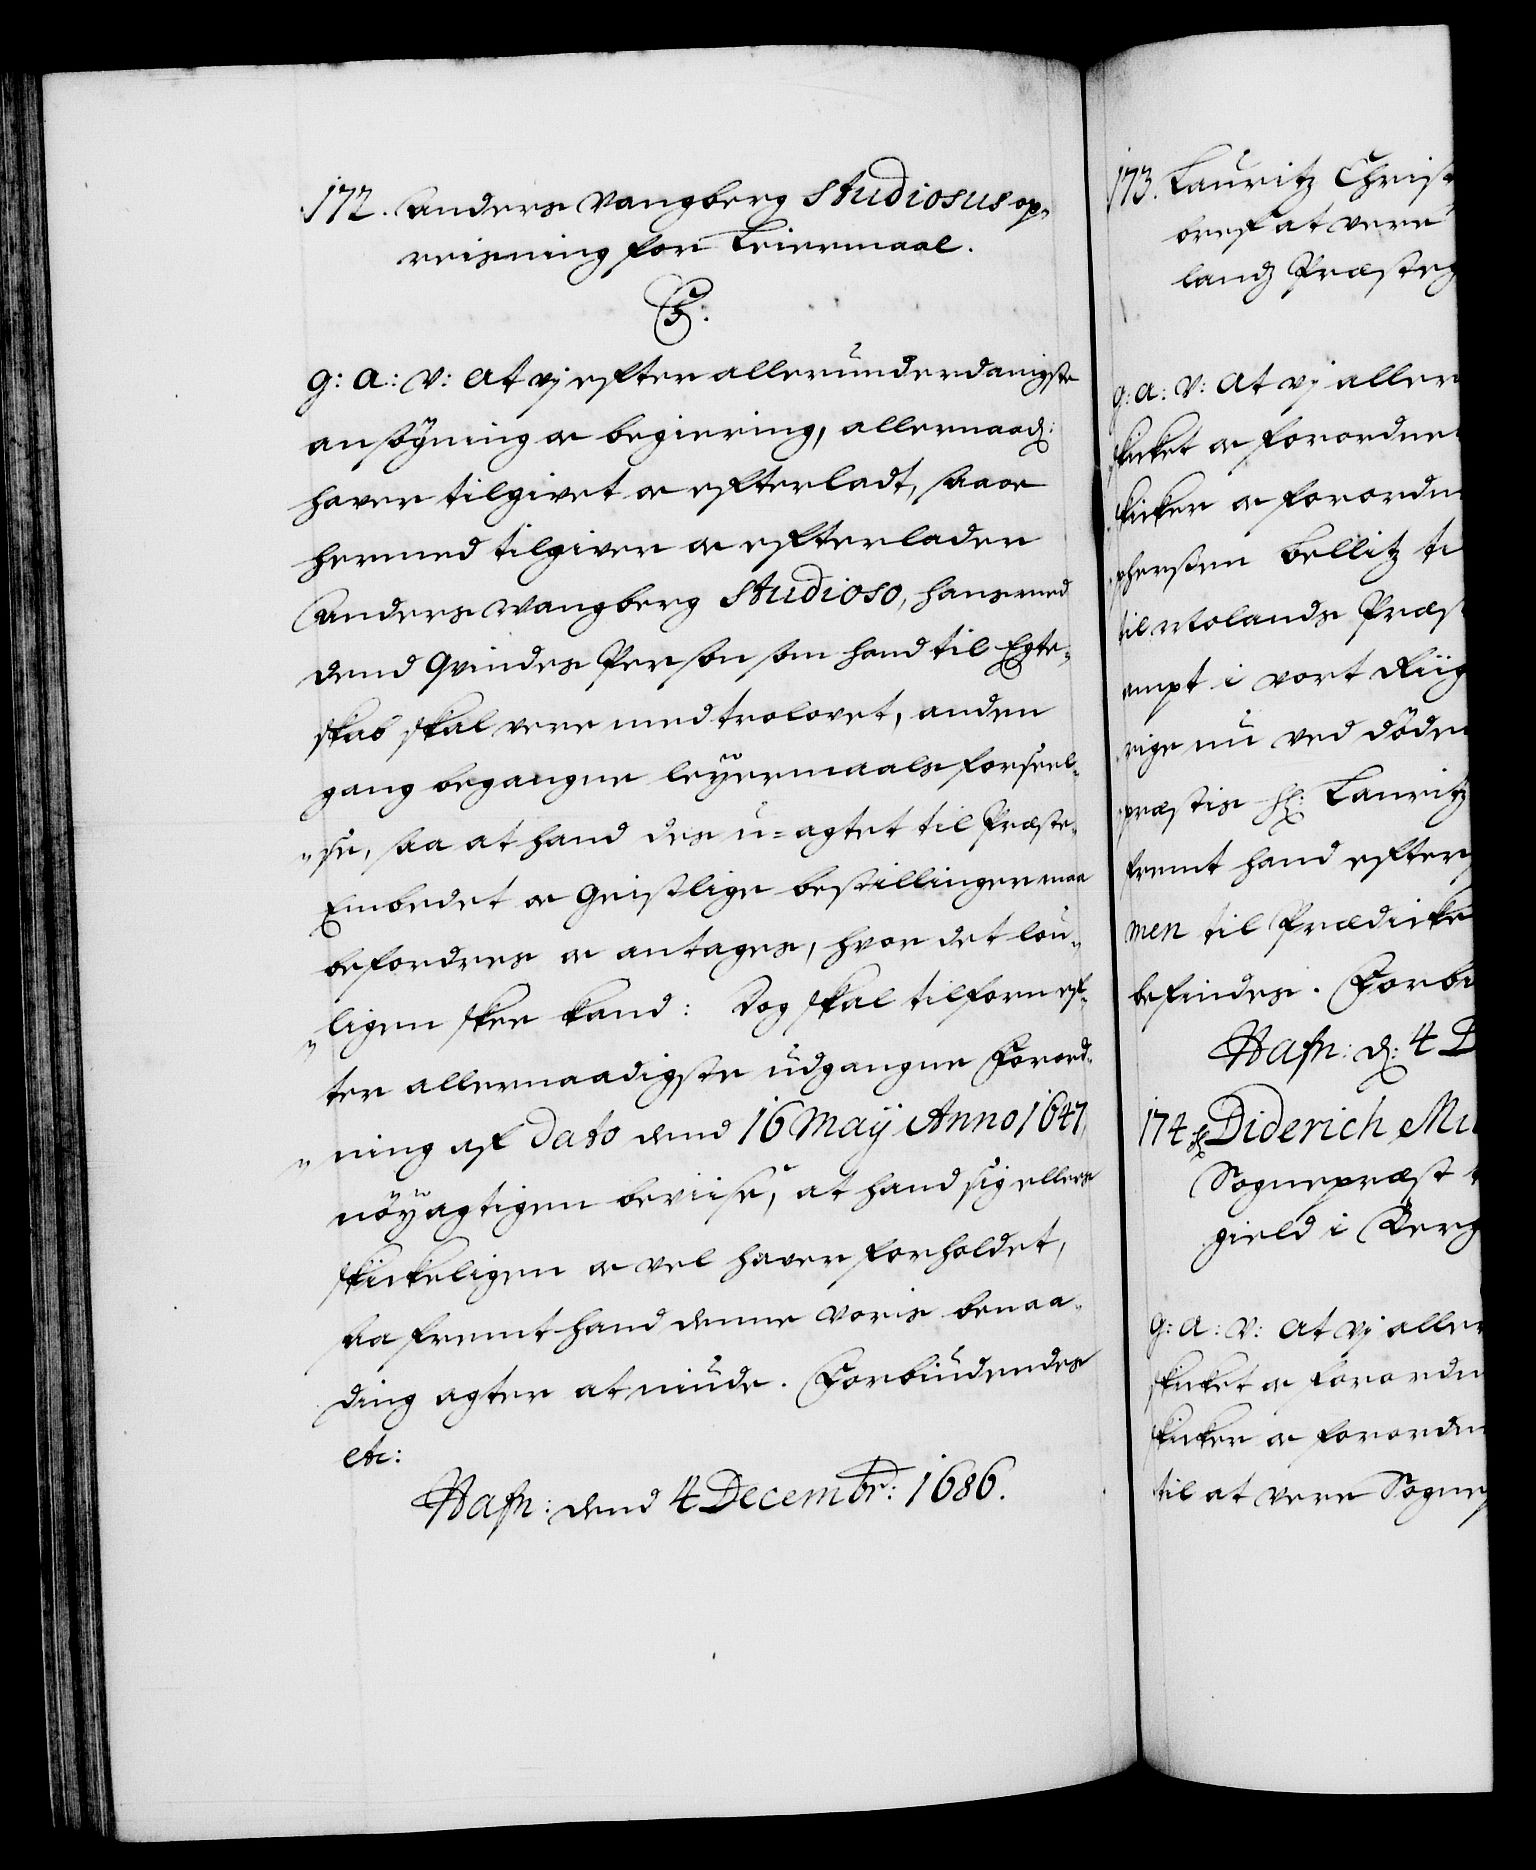 172. Anders Vangberg Studiosus op-
reisning for Leiermaal.
C5.
G: A: V: At vj efter allerunderdanigste
ansøgning oc begiering, allernaad:
haver tilgivet oc efterladt, saa oc
hermed tilgiver oc efterlader
Anders Wangberg Studioso, hans med
dend Qvindes Person som hand til Egte-
skab skal vere med trolovet, anden
gang begangne leÿermaals forseel-
se, saa at hand des u-agtet til Præste-
Embedet oc Geistlige bestillinger maa
befordres oc antages, hvor det lou-
ligen skee kand: Dog skal tilforn ef-
ter allernaadigste udgangne Forord-
ning af Dato dend 16 Maÿ Anno 1647,
nöÿagtigen beviise, at hand sig ellers
skickeligen oc vel haver forholdet,
saa fremt hand denne voris benaa-
ding agter at niude. Forbiudendes
etc:
Hafn: dend 4 Decembr: 1686.
173. Lauritz Christ
bref at vere
landz Præsteg
G: A: V: At vj aller
skicket oc forordne
skicker oc forordn
phersen Bellitz ti
til Rolands Præst
ampt i vort Riig
rige nu ved döde
præstis Hr: Lauritz
fremt hand efter
men til Prædicke
befindes. Forbi
Hafn: d: 4 D
174 Hr Diderich Mu
Sognepræst
gield i Berg
G: A: V: At vj aller
skicket oc forordn
skicker oc forordn
til at vere Sognep